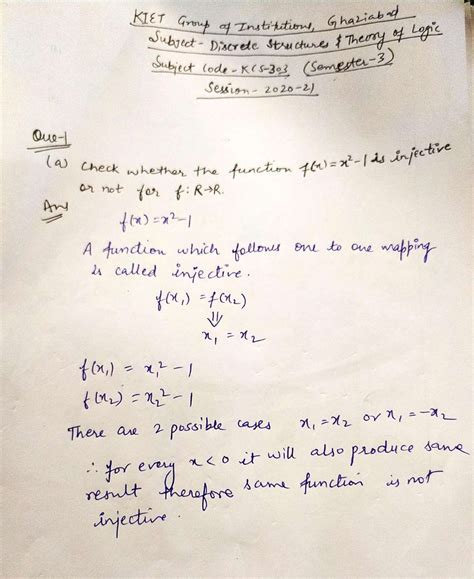 KIET Group of Institutions, Ghaziabad
Subject - Discrete Structures & Theory of Logic
Subject Code - KCS-303 (Semester-3)
Session - 2020-21
Que-1
(a) Check whether the function f(x)=x²-1 is injective
or not for f: R→R.
Ans
f(x)=x²-1
A function which follows one to one mapping
is called injective.
f(x₁) = f(x₂)
⇓
x₁ = x₂
f(x₁) = x₁² - 1
f(x₂) = x₂² - 1
There are 2 possible cases x₁=x₂ or x₁=-x₂
∴ for every x<0 it will also produce same
result therefore same function is not
injective.